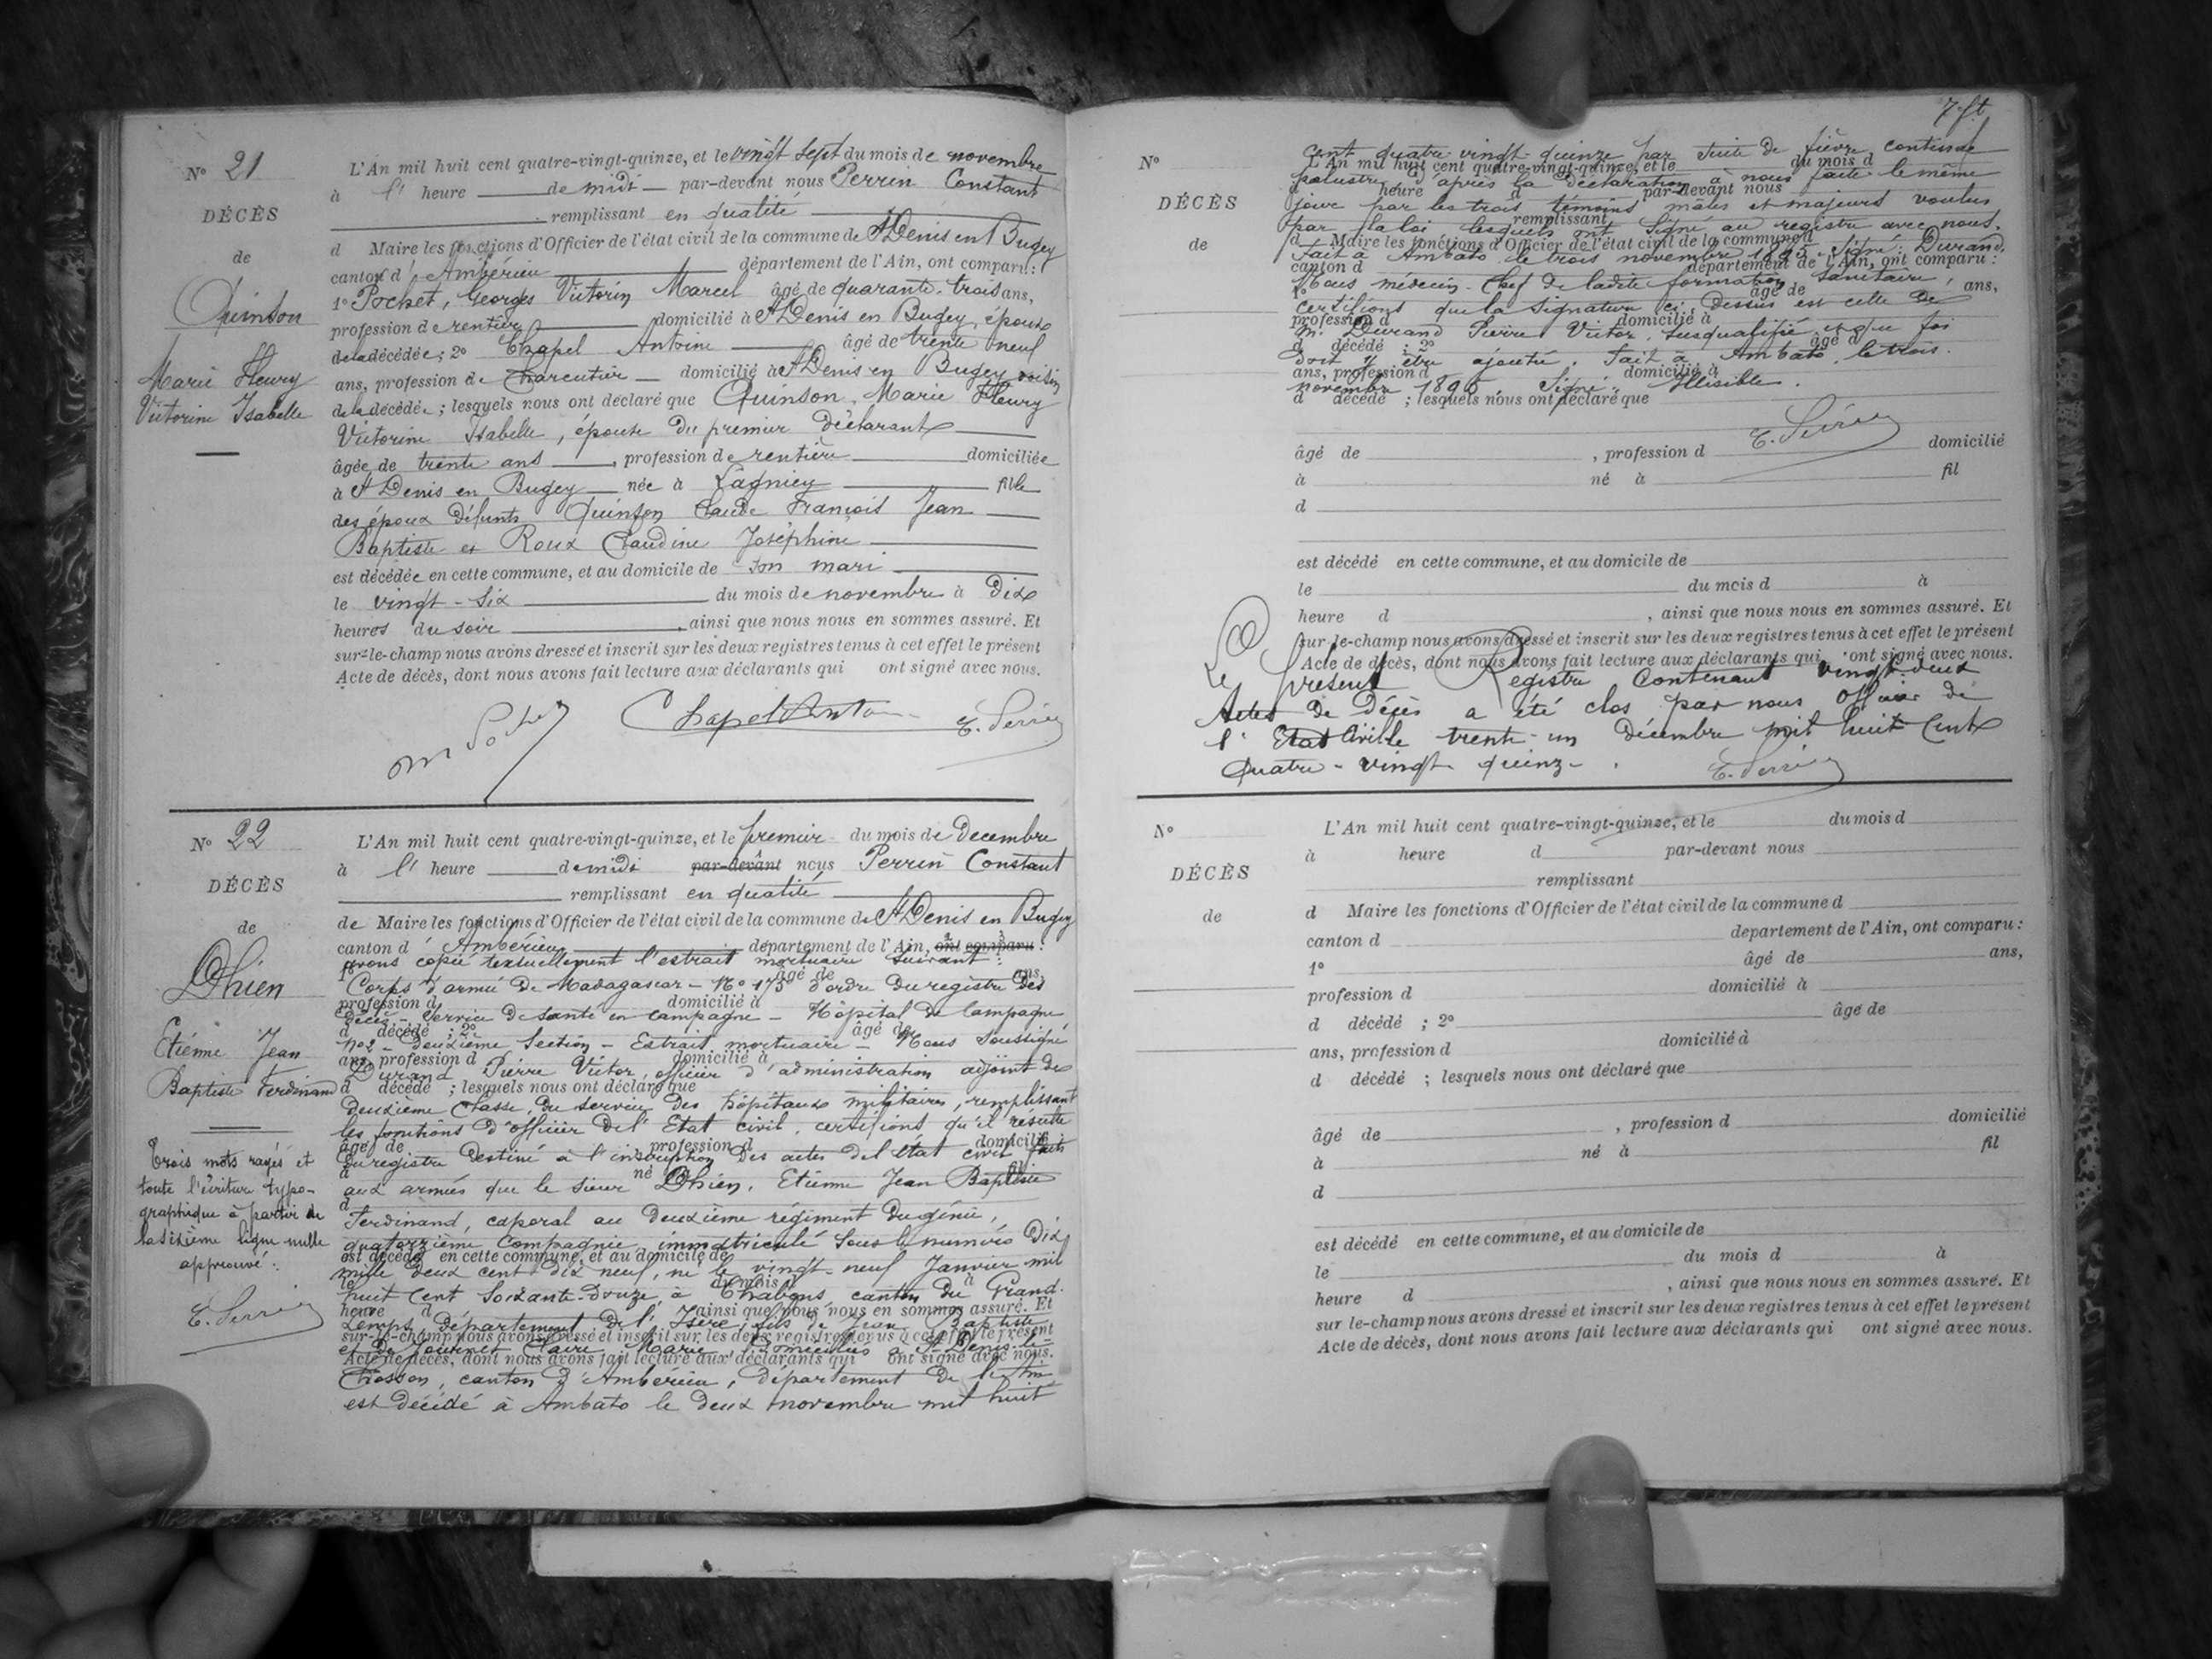 N° 21
DÉCÈS
de
Quinson
Marie Fleury
Victorine Isabelle
L'An mil huit cent quatre-vingt-quinze, et le vingt sept du mois de novembre
à l' heure de midi par-devant nous Perrin Constant
remplissant en qualité
d Maire les fonctions d'Officier de l'état civil de la commune de St Denis en Bugey
canton d'Ambérieu département de l'Ain, ont comparu:
1° Pochet, Georges Victorin Marcel âgé de quarante-trois ans,
profession de rentier domicilié à St Denis en Bugey, époux
de la décédée; 2° Chapel Antoine âgé de trente neuf
ans, profession de charcutier domicilié à St Denis en Bugey voisin
de la décédée; lesquels nous ont déclaré que Quinson, Marie Fleury
Victorine Isabelle, épouse du premier déclarant
âgée de trente ans, profession de rentière domiciliée
à St Denis en Bugey née à Lagnieu fille
des époux défunts Quinson Claude François Jean
Baptiste et Roux Claudine Joséphine
est décédée en cette commune, et au domicile de son mari
le vingt-six du mois de novembre à dix
heures du soir, ainsi que nous nous en sommes assuré. Et
sur-le-champ nous avons dressé et inscrit sur les deux registres tenus à cet effet le présent
Acte de décès, dont nous avons fait lecture aux déclarants qui ont signé avec nous.
Chapel
N° 22
DÉCÈS
de
Dhien
Etienne Jean
Baptiste Ferdinand
Trois mots rayés et
toute l'écriture typo-
graphique à partir de
la sixième ligne nulle
approuvé:
L'An mil huit cent quatre-vingt-quinze, et le premier du mois de decembre
à l' heure de midi par-devant nous Perrin Constant
remplissant en qualité
de Maire les fonctions d'Officier de l'état civil de la commune de St Denis en Bugey
canton d'Ambérieu département de l'Ain, ont comparu:
avons copié textuellement l'extrait mortuaire suivant:
1° âgé de ans,
Corps d'armée de Madagascar - N° 175 d'ordre du registre des
profession d domicilié à
décès - Service de santé en campagne - Hôpital de campagne
d décédé ; 2° âgé de
n° 2 - Deuxième Section - Extrait mortuaire - Nous soussigné
ans, profession d domicilié à
Durand Pierre Victor, officier d'administration adjoint de
d décédé ; lesquels nous ont déclaré que
deuxième classe, du service des hôpitaux militaires, remplissant
les fonctions d'officier de l'Etat civil, certifions qu'il résulte
âgé de profession d domicilié
du registre destiné à l'inscription des actes de l'état civil faits
à né à fil
aux armées que le sieur Dhien, Etienne Jean Baptiste
d
Ferdinand, caporal au deuxième régiment du génie,
quatorzième Compagnie, immatriculé sous le numéro dix
est décédé en cette commune, et au domicile de
mille deux cent dix neuf, né le vingt-neuf Janvier mil
le du mois d à
huit cent soixante-douze à Chabons canton du Grand-
heure d ainsi que nous nous en sommes assuré. Et
Lemps, département de l'Isère, fils de Jean Baptiste
sur-le-champ nous avons dressé et inscrit sur les deux registres tenus à cet effet le présent
et de Journet Claire Marie domiciliés à St Denis-le-
Acte de décès, dont nous avons fait lecture aux déclarants qui ont signé avec nous.
Chosson, canton d'Ambérieu, département de l'Ain
est décédé à Ambato le deux novembre mil huit
N°
DÉCÈS
de
cent quatre-vingt-quinze par suite de fièvre continue
L'An mil huit cent quatre-vingt-quinze, et le du mois d
palustre, d'après la déclaration à nous faite le même
à heure d par-devant nous
jour par les trois témoins mâles et majeurs voulus
remplissant
par la loi lesquels ont signé au registre avec nous.
d Maire les fonctions d'Officier de l'état civil de la commune d
Fait à Ambato le trois novembre 1895. Signé: Durand.
canton d département de l'Ain, ont comparu:
Nous médecin-Chef de ladite formation sanitaire,
1° âgé de ans,
certifions que la signature ci-dessus est celle de
profession d domicilié à
M. Durand Pierre Victor, susqualifié et que foi
d décédé ; 2° âgé d
doit y être ajouté. Fait à Ambato le trois
ans, profession d domicilié à
novembre 1895. Signé: Illisible.
d décédé ; lesquels nous ont déclaré que
âgé de , profession d domicilié
à né à fil
d
est décédé en cette commune, et au domicile de
le du mois d à
heure d , ainsi que nous nous en sommes assuré. Et
sur-le-champ nous avons dressé et inscrit sur les deux registres tenus à cet effet le présent
Acte de décès, dont nous avons fait lecture aux déclarants qui ont signé avec nous.
Le présent Registre contenant vingt-deux
Actes de Décès a été clos par nous officier de
l'Etat Civil le trente-un décembre mil huit cent
quatre-vingt-quinze.
N°
DÉCÈS
de
L'An mil huit cent quatre-vingt-quinze, et le du mois d
à heure d par-devant nous
remplissant
d Maire les fonctions d'Officier de l'état civil de la commune d
canton d departement de l'Ain, ont comparu:
1° âgé de ans,
profession d domicilié à
d décédé ; 2° âgé de
ans, profession d domicilié à
d décédé ; lesquels nous ont déclaré que
âgé de , profession d domicilié
à né à fil
d
est décédé en cette commune, et au domicile de
le du mois d à
heure d , ainsi que nous nous en sommes assuré. Et
sur le-champ nous avons dressé et inscrit sur les deux registres tenus à cet effet le présent
Acte de décès, dont nous avons fait lecture aux déclarants qui ont signé avec nous.